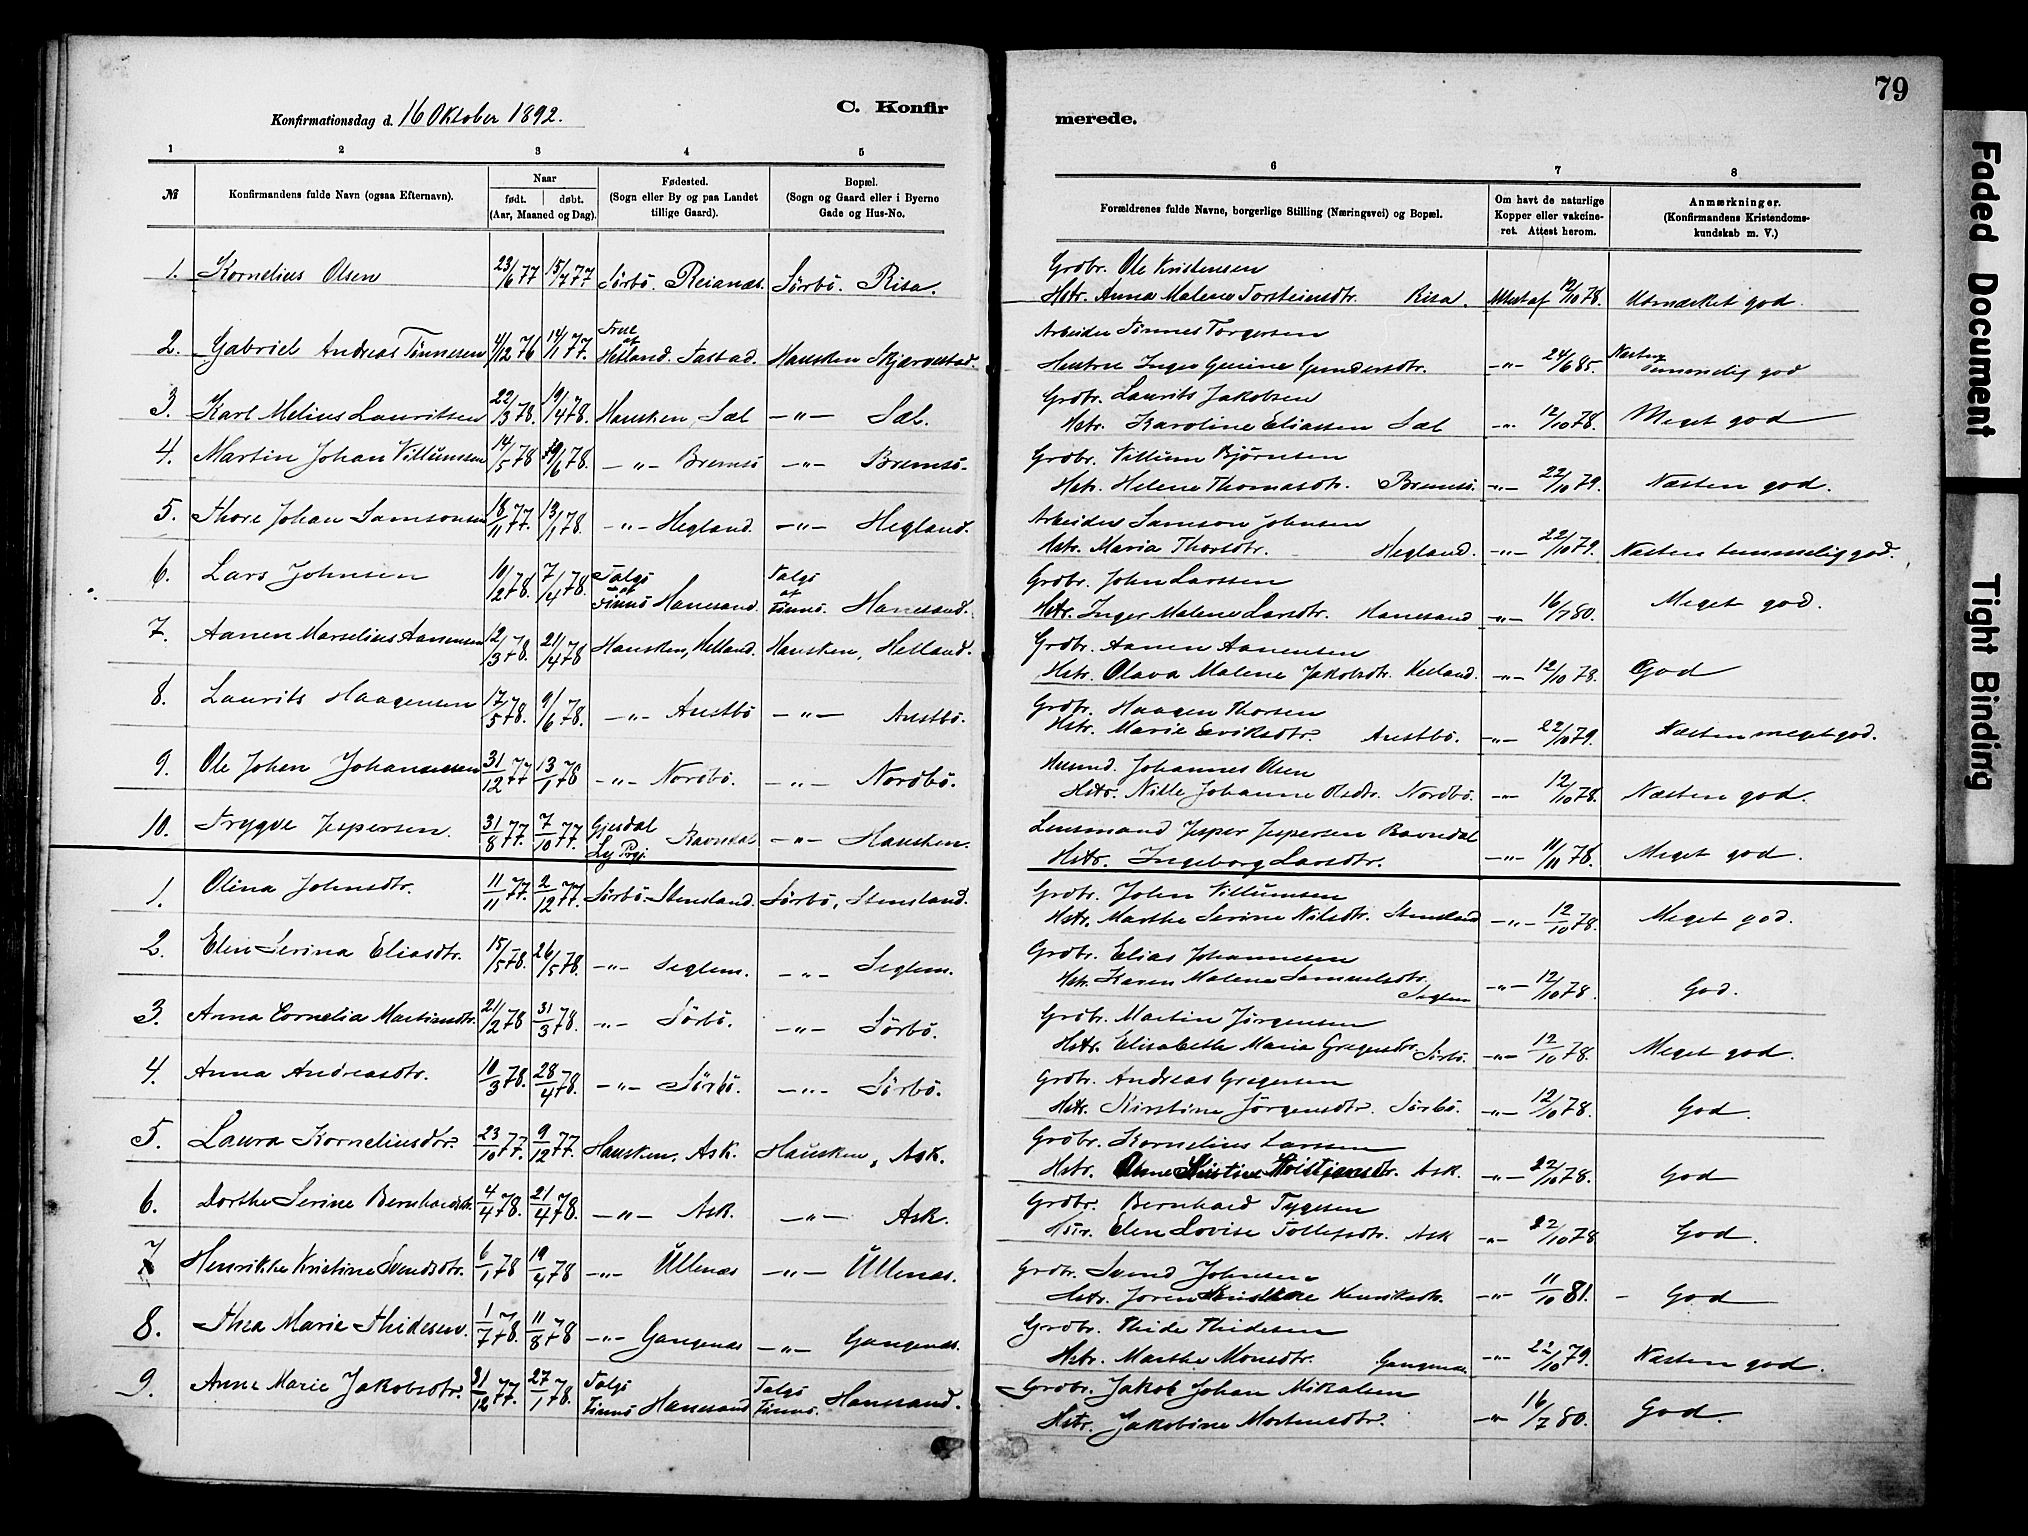 79
C. Konfir
merede.
Konfirmationsdag d. 16 Oktober 1892.
1 2 3 4 5 6 7 8
№
Konfirmandens fulde Navn (ogsaa Efternavn).
Naar
født. døbt.
(Aar, Maaned og Dag).
Fødested.
(Sogn eller By og paa Landet
tillige Gaard).
Bopæl.
(Sogn og Gaard eller i Byerne
Gade og Hus-No.
Forældrenes fulde Navne, borgerlige Stilling (Næringsvei) og Bopæl.
Om havt de naturlige
Kopper eller vakcine-
ret. Attest herom.
Anmærkninger.
(Konfirmandens Kristendoms-
kundskab m. V.)
Grdbr. Ole Kristensen
1. Kornelius Olsen 23/6 77 15/7 77 Sørbö. Reianæs. Sørbö. Risa. Hstr. Anna Malene Torsteinsdtr. Risa. Attest af 12/10 78. Udmærket god.
Arbeider Tönnes Torgersen
2. Gabriel Andreas Tönnesen 4/12 76 14/1 77. Frue af Hetland. Tastad. Hausken Skjærvestad. Hustru Inger Gurine Gundersdtr. -"- 24/6 85. Næsten temmelig god
Grdbr. Laurits Jakobsen
3. Karl Melius Lauritsen 22/3 78. 19/4 78. Hausken, Sæl -"- Sæl. Hstr. Karoline Eliassen Sæl -"- 12/10 78. Meget god
Grdbr. Villum Bjørnsen
4. Martin Johan Villumsen 14/5 78 /6 78. -"- Bremsö -"- Bremsö. Hstr. Helene Thomasdtr. Bremsö. -"- 22/10 79. Næsten god.
Arbeider Samson Johnsen
5. Thore Johan Samsonsen 18/11 77. 13/1 78. -"- Hegland. -"- Hegland. Hstr. Maria Thorsdtr. Hegland. -"- 22/10 79. Næsten temmelig god.
Grdbr. John Larssen
6. Lars Johnsen 10/2 78. 7/4 78. Talgö af Finnö Hanesand. Talgö af Finnö. Hanesand. Hstr. Inger Malene Larsdtr. Hanesand -"- 16/7 80. Meget god.
Grdbr. Aanen Aanensen
7. Aanen Marselius Aanensen 12/3 78. 21/4 78 Hausken, Helland. Hausken, Helland. Hstr. Olava Malene Jakobsdtr. Helland. -"- 12/10 78. God
Grdbr. Haagen Thorsen
8. Laurits Haagensen 17/5 78. 9/6 78. -"- Austbö -"- Austbö. Hstr. Marie Eriksdtr. Austbö. -"- 22/10 79. Næsten meget god.
Husmd. Johannes Olsen
9. Ole Johan Johannesen 31/12 77 13/1 78 -"- Nordbö. -"- Nordbö. Hstr. Nille Johanne Olsdtr. Nordbö. -"- 12/10 78. Næsten god.
Lensmand Jesper Jespersen Ravndal
10. Trygve Jespersen. 31/8 77. 7/10 77. Gjesdal Ly Prgj. Ravndal -"- Hausken. Hstr. Ingeborg Larsdtr. -"- 11/11 78. Meget god.
Grdbr. John Villumsen
1. Olina Johnsdtr. 11/11 77. 2/12 77. Sørbö. Stensland. Sørbö, Stensland. Hstr. Marthe Serine Nilsdtr. Stensland -"- 12/10 78. Meget god.
Grdbr. Elias Johannesen
2. Elen Serina Eliasdtr. 15/5 78. 26/5 78. -"- Seglem. -"- Seglem. Hstr. Karen Malene Samuelsdtr. Seglem -"- 12/10 78. God.
Grdbr. Martin Jørgensen
3. Anna Cornelia Martinsdtr. 21/2 78 31/3 78. -"- Sörbö. -"- Sörbö. Hstr. Elisabeth Maria Gregersdtr. Sørbö. -"- 12/10 78. Meget god.
Grdbr. Andreas Gregersen
4. Anna Andreasdtr. 10/3 78. 28/4 78. -"- Sörbö. -"- Sörbö. Hstr. Kirstine Jörgensdtr. Sørbö. -"- 12/10 78. God.
Grdbr. Kornelius Larssen
5. Laura Korneliusdtr. 23/10 77. 9/12 77. Hausken, Ask. Hausken, Ask. Hstr. Ane Kirstine Kristiansdtr. Ask. -"- 22/10 78. God
Grdbr. Bernhard Tygesen
6. Dorthe Serine Bernhardsdtr. 4/4 78. 21/4 78. -"- Ask. -"- Ask. Hstr. Elen Lovise Tollefsdtr. Ask -"- 22/10 78 God.
Grdbr. Svend Johnsen
7 Henrikke Kristine Svendsdtr. 6/1 78 19/4 78 -"- Üllenæs -"- Üllenæs. Hstr. Joren Henriksdtr. -"- 11/10 81. - God
Grdbr. Thide Thidesen
8. Thea Marie Thidesen. 1/7 78. 11/8 78 -"- Gangenæs -"- Gangenæs. Hstr. Marthe Monsdtr. Gangenæs -"- 22/10 79. Næsten god.
Grdbr. Jakob Johan Mikalsen
9. Anne Marie Jakobsdtr. 31/12 77. 27/1 78. Talgö Finnö Hanesand Talgö Finnö. Hanesand. Hstr. Jakobine Mortensdtr. -"- 16/7 80. God.
Faded Document
Tight Binding